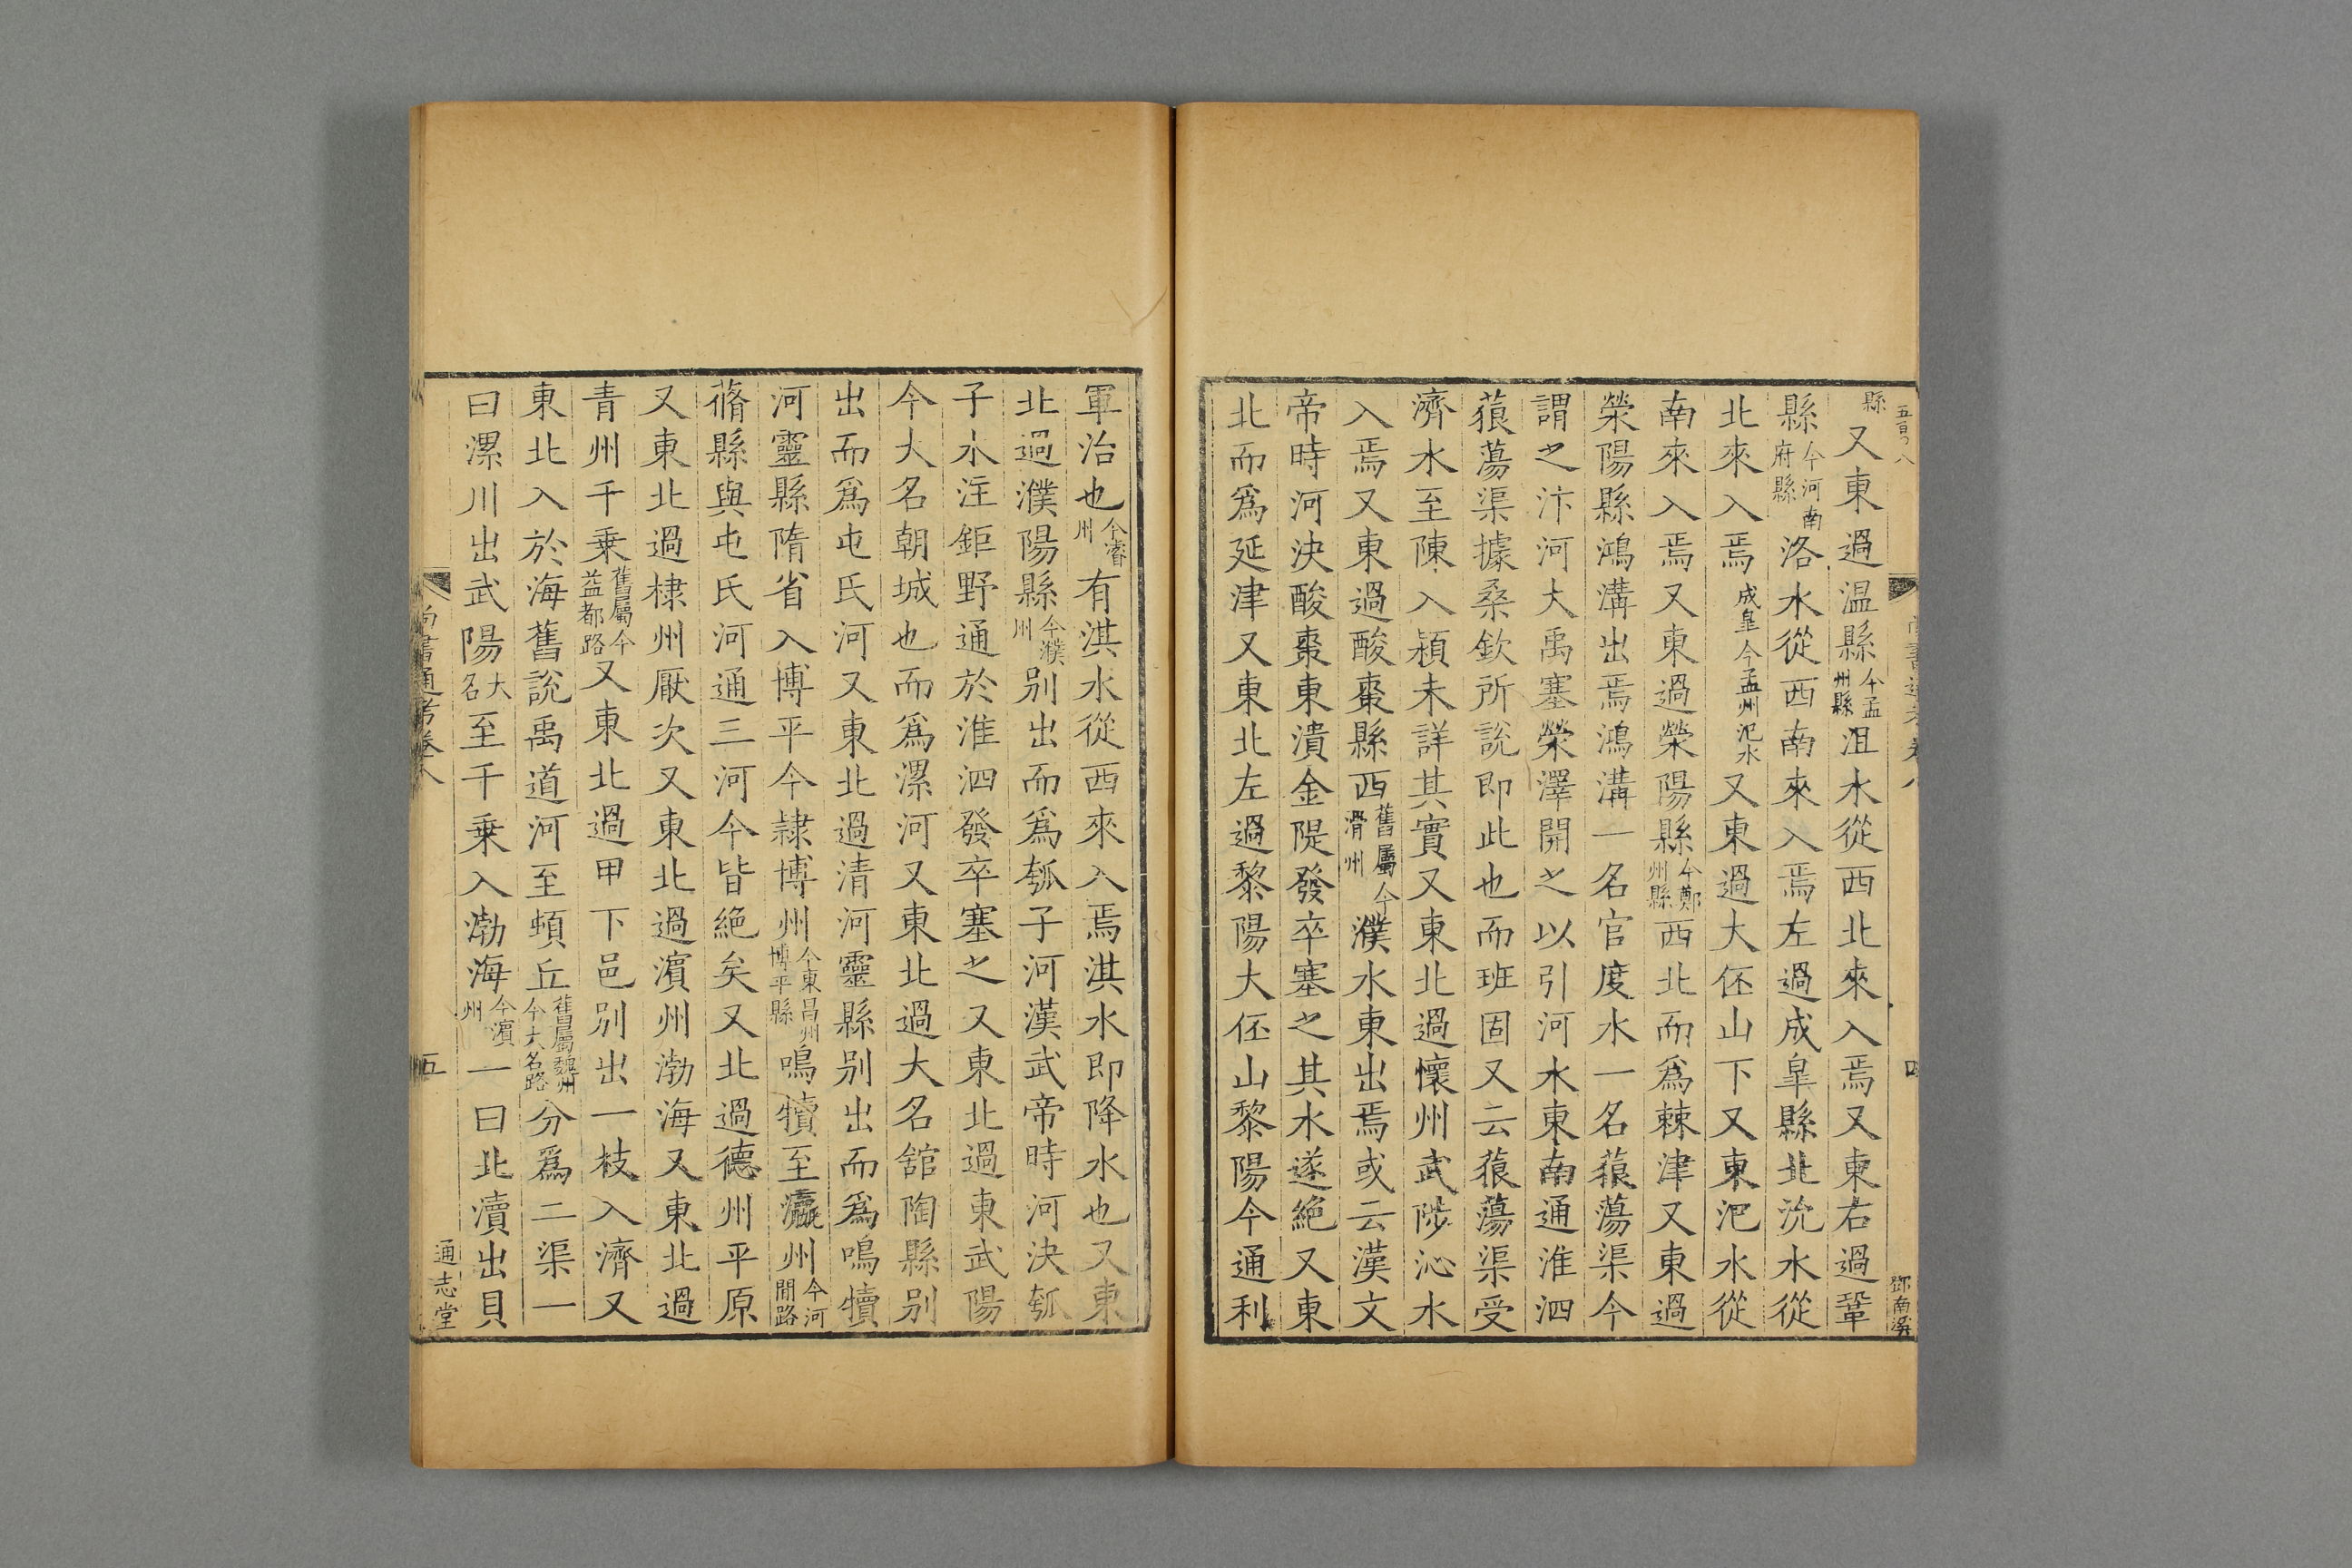 縣又東過温縣今孟州縣沮水從西北來入焉又東右過鞏
縣今河南府縣洛水從西南來入焉左過成皐縣北沇水從
北來入焉成皐今孟州汜水又東過大伾山下又東汜水從
南來入焉又東過滎陽縣今鄭州縣西北而爲棘津又東過
滎陽縣鴻溝出焉鴻溝一名官度水一名蒗蕩渠今
謂之汴河大禹塞滎澤開之以引河水東南通淮泗
蒗蕩渠據桑欽所說即此也而班固又云蒗蕩渠受
濟水至陳入潁未詳其實又東北過懷州武陟沁水
入焉又東過酸棗縣西舊屬今滑州濮水東出焉或云漢文
帝時河決酸棗東潰金隄發卒塞之其水遂絕又東
北而爲延津又東北左過黎陽大伾山黎陽今通利
鄧南溪
軍治也今濬州有淇水從西來入焉淇水即降水也又東
北過濮陽縣今濮州別出而爲瓠子河漢武帝時河決瓠
子水注鉅野通於淮泗發卒塞之又東北過東武陽
今大名朝城也而爲漯河又東北過大名舘陶縣別
出而爲屯氏河又東北過清河靈縣別出而爲鳴犢
河靈縣隋省入博平今隷博州今東昌州博平縣鳴犢至瀛州今河間路
蓨縣與屯氏河通三河今皆絕矣又北過德州平原
又東北過棣州厭次又東北過濱州渤海又東北過
青州千乗舊屬今益都路又東北過甲下邑別出一枝入濟又
東北入於海舊說禹道河至頓丘舊屬魏州今大名路分爲二渠一
曰漯川出武陽大名至千乗入渤海今濱州一曰北瀆出貝
尚書通考卷八
五
通志堂